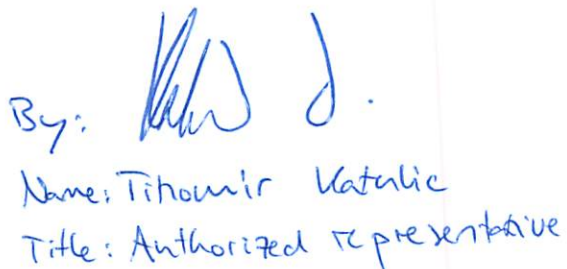 By:
Name: Tihomir Katulic
Title: Authorized representative